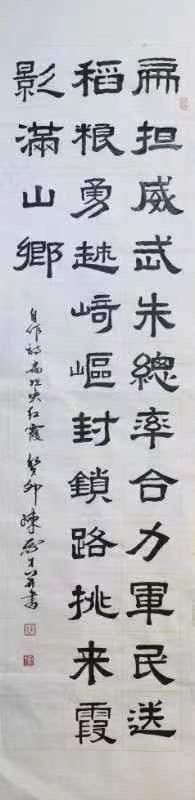 扁担威武朱總率合力軍民送
稻粮勇越崎嶇封鎖路挑来霞
影滿山鄉
自作詩扁担红霞 癸卯 陳书